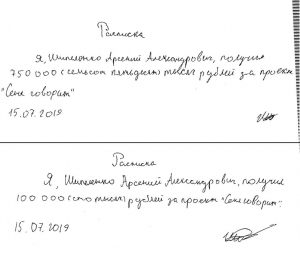 Расписка
Я, Шипиленко Арсений Александрович, получил
750 000 (семьсот пятьдесят тысяч рублей за проект
"Сене говорит"
15.07.2019
Расписка
Я, Шипиленко Арсений Александрович, получил
100 000 (сто тысяч рублей за проект "Сене говорит".
15.07.2019